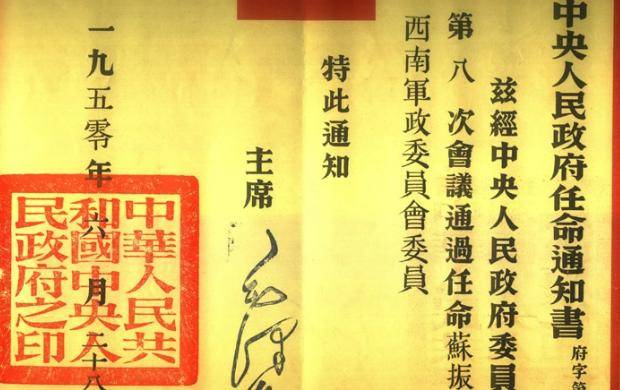 中央人民政府任命通知書
府字第
茲經中央人民政府委員
第八次會議通過任命蘇振
西南軍政委員會委員
特此通知
主席
毛澤
一九五零年六月二十八
中華人民共
和國中央人
民政府之印